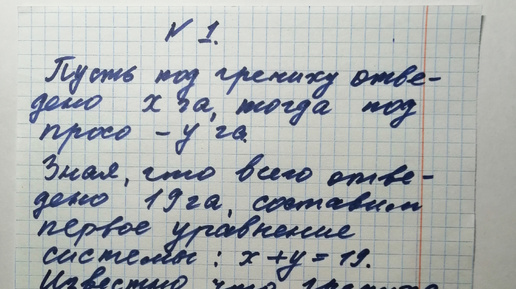 № 1.
Пусть под гречиху отве-
дено x га, тогда под
просо – y га.
Зная, что всего отве-
дено 19 га, составим
первое уравнение
системы: x + y = 19.
Известно что гречиха